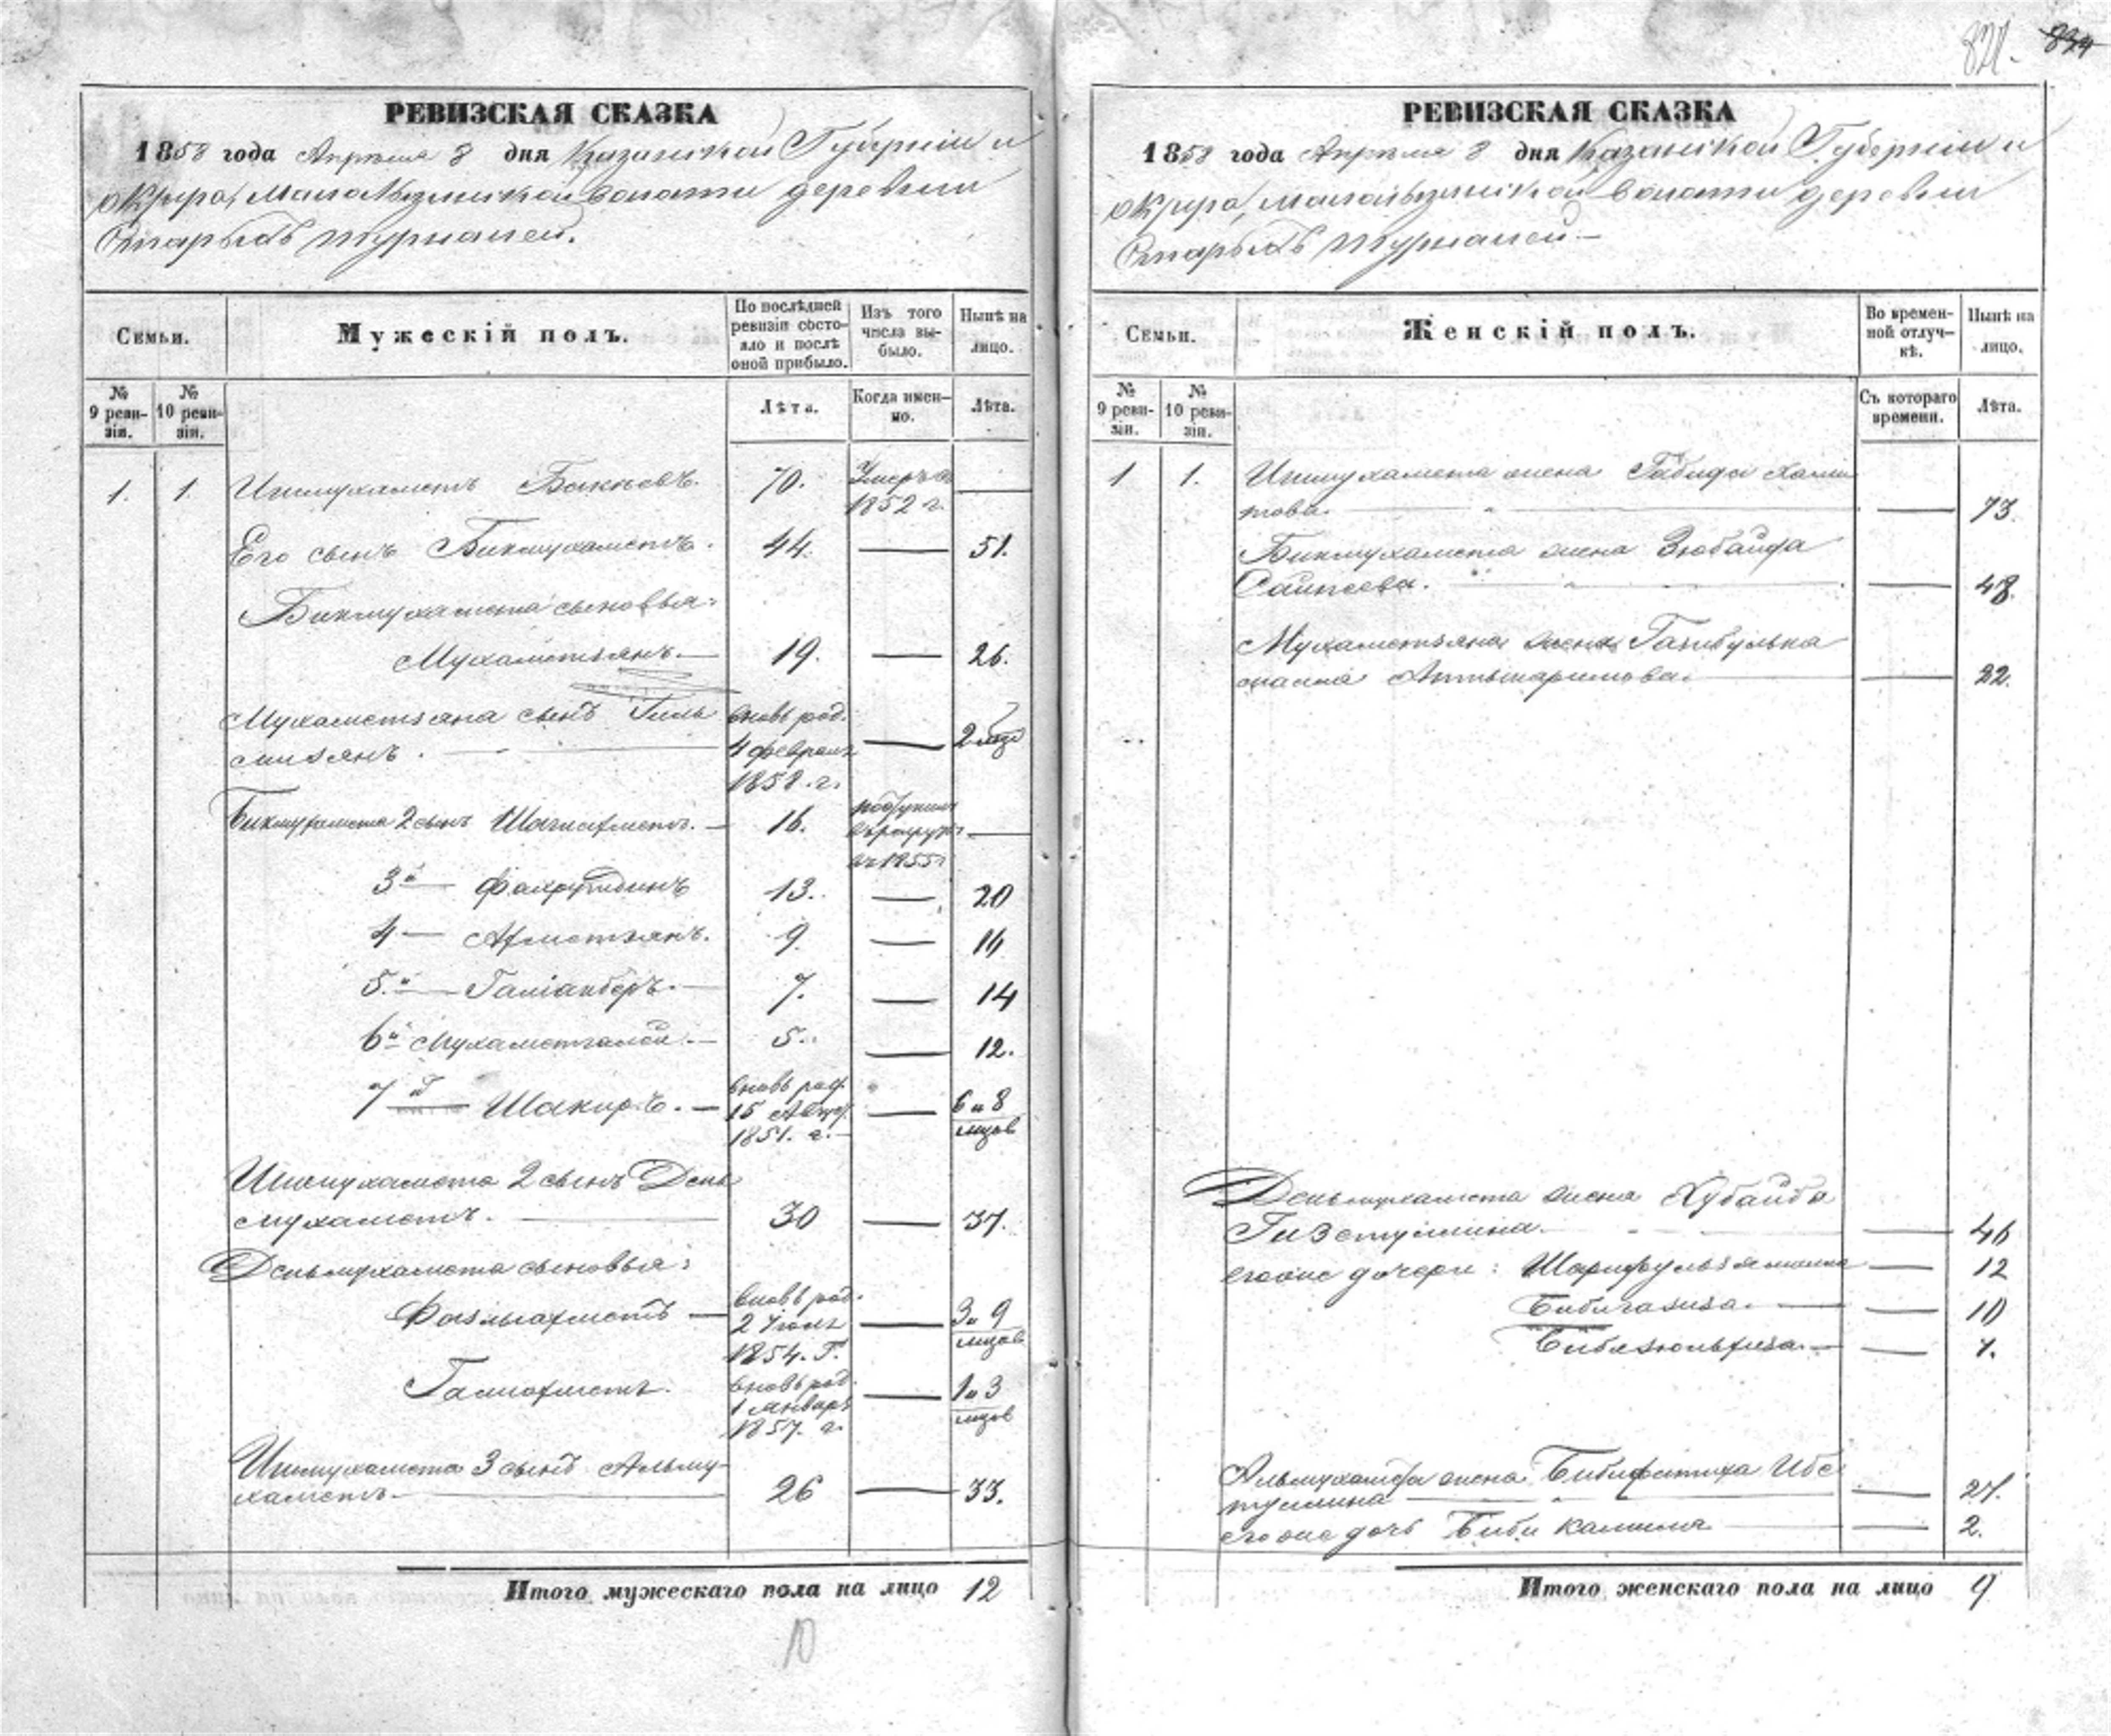 821. 834
РЕВИЗСКАЯ СКАЗКА
1858 года Апреля 8 дня Казанской Губернии и
округа, волости деревни
Старыхъ
Семьи.
Мужескій полъ.
По послѣдней ревизіи состояло и послѣ оной прибыло.
Изъ того числа выбыло.
Нынѣ на лицо.
№ 9 ревизіи.
№ 10 ревизіи.
Лѣта.
Когда именно.
Лѣта.
1. 1. Ишмухаметъ Бакѣевъ. 70. Умеръ въ 1852 г. —
Его сынъ Бикмухаметъ. 44. — 51.
Бикмухамета сыновья:
Мухаметзянъ. — 19. — 26.
Мухаметзяна сынъ Гиль
мизянъ. — вновь род. 4 февраля 1858. г. — 2 мца
Бикмухамета 2 сынъ Шагиахметъ. — 16. въ рекруты въ 1855 г —
3й — Фахрутдинъ 13. — 20
4 — Ахметзянъ. 9. — 16
5.й — Галіакберъ. — 7. — 14
6й Мухаметгалей. — 5. — 12.
7й — Шакиръ. — вновь род. 15 Авгус. 1851. г. — 6 и 8 мцов
Ишмухамета 2 сынъ День
мухаметъ. — 30 — 37.
Деньмухамета сыновья:
Фазлыахметъ — вновь род. 2 Июля 1854. г. — 3 и 9 мцов
Галиахметъ. вновь род. 1 Января 1857. г. — 1 и 3 мцов
Ишмухамета 3 сынъ Альму-
хаметъ. — 26 — 33.
Итого мужескаго пола на лицо 12
10
РЕВИЗСКАЯ СКАЗКА
1858 года Апреля 8 дня Казанской Губернии и
округа, волости деревни
Старыхъ
Семьи.
Женскій полъ.
Во временной отлучкѣ.
Нынѣ на лицо.
№ 9 ревизіи.
№ 10 ревизіи.
Съ котораго времени.
Лѣта.
1 1. Ишмухамета жена Габида Хами
това. — 73.
Бикмухамета жена Зюбайда
Саитеева. — 48.
Мухаметзяна жена
— 22.
Деньмухамета жена Хубайба
— 46
его дочери: — 12
Бибигазиза. — 10
— 7.
Альмухамета жена Бибифатиха Ибе
туллина — 27.
его дочь Биби Камиля — 2.
Итого женскаго пола на лицо 9